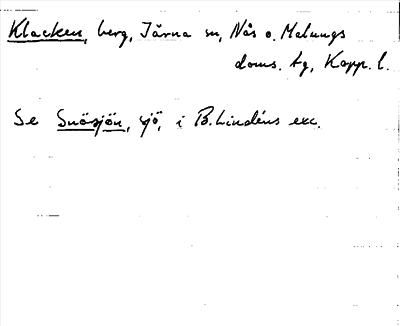 Klacken, berg, Järna sn, Nås o. Malungs
doms. tg, Kopp. l.
Se Snösjön, sjö, i B. Lindéns exc.